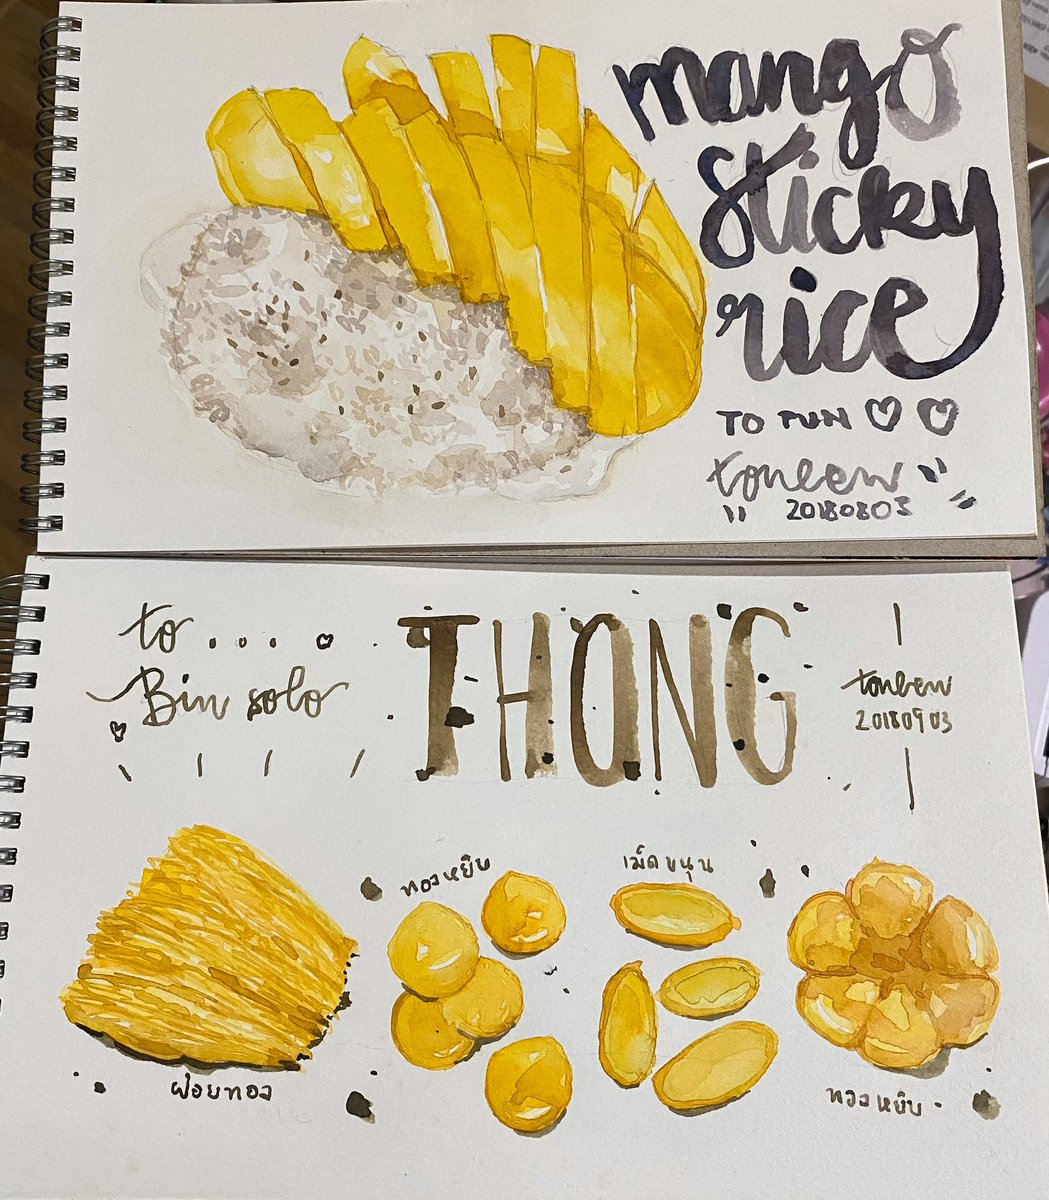 mango
sticky
rice
TO TUN
toneew
20180803
to ....
Bin solo
THONG
toneew
20180903
ทองหยิบ
เม็ดขนุน
ฝอยทอง
ทองหยิบ